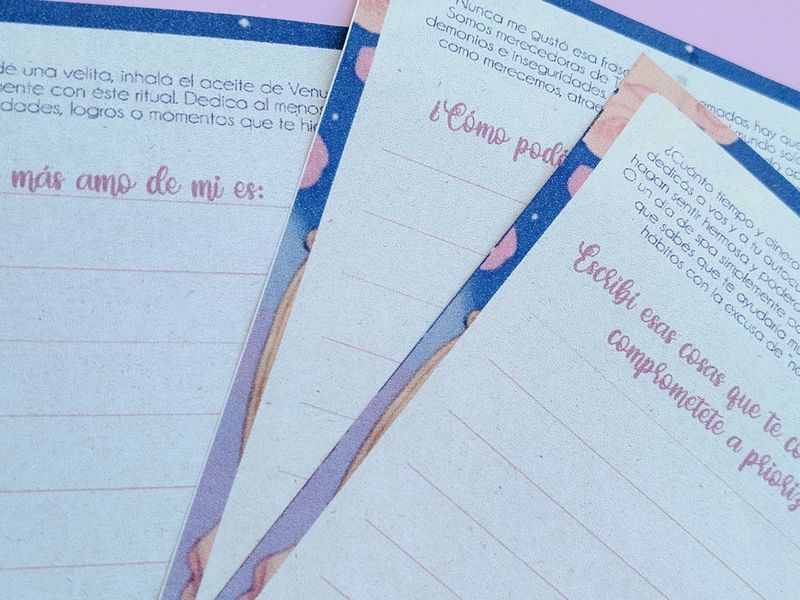 una velita, inhalá el aceite de Venu
mente con éste ritual. Dedica al menos
dades, logros o momentos que te hi
más amo de mi es:
Nunca me gustó esa frase
Somos merecedoras de
demonios e inseguridades,
como merecemos, atrae
¿Cómo podé
amadas, hay que
mundo
¿Cuánto tiempo y dinero
dedicás a vos y a tu autocu
hagan sentir hermosa y poderosa
O un día de spa simplemente
que sabes que te ayudaría
hábitos con la excusa de no
Escribí esas cosas que te
comprometete a prioriz